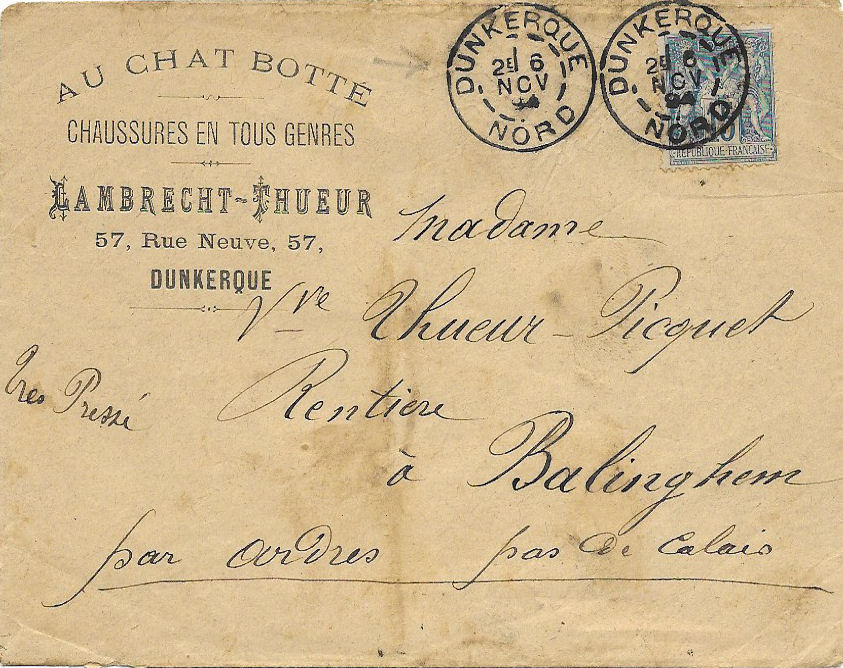 AU CHAT BOTTÉ
CHAUSSURES EN TOUS GENRES
LAMBRECHT-THUEUR
57, Rue Neuve, 57,
DUNKERQUE
DUNKERQUE
2E 6
NOV
94
NORD
DUNKERQUE
2E 6
NOV
94
NORD
15
REPUBLIQUE FRANÇAISE
Madame
Vve Thueur-Picquet
Très Pressé
Rentiere
à Balinghem
par Ardres pas de Calais